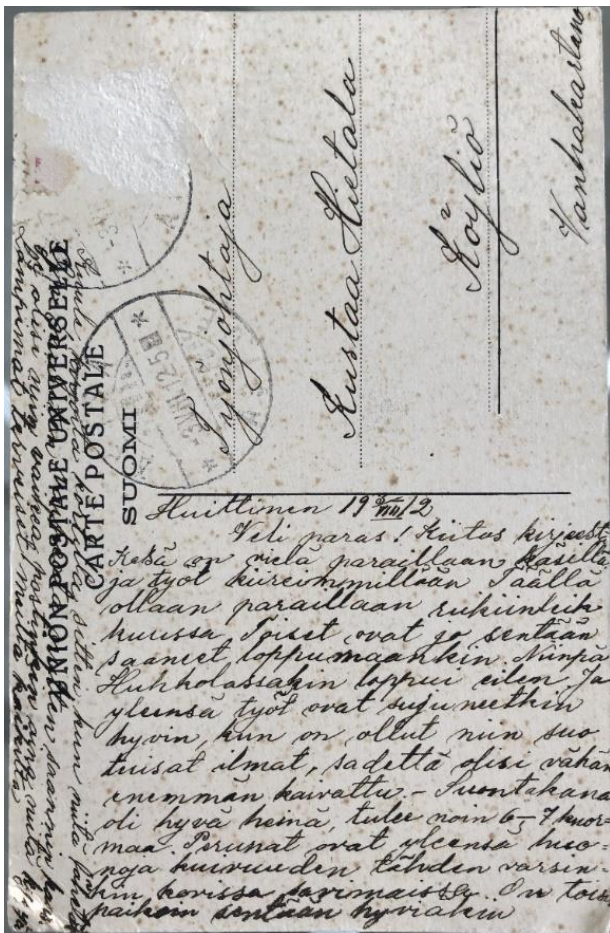 UNION POSTALE UNIVERSELLE
CARTE POSTALE
SUOMI
Työnjohtaja
Kustaa Hietala
Köyliö
Vanhakartano
Huittinen 19 3/VIII 12
Veli paras! Kiitos kirjeestä
Kesä on vielä paraillaan käsillä
ja työt kiireimmillään Täällä
ollaan paraillaan rukiinleik
kurissa Toiset ovat jo sentään
saaneet loppumaankin. Niinpä
Huhkolassakin loppui eilen Ja
yleensä työt ovat sujuneetkin
hyvin, kun on ollut niin suo
tuisat ilmat, sadetta olisi vähän
enemmän kaivattu. – Suontakana
oli hyvä heinä, tulee noin 6–7 kuor=
maa Perunat ovat yleensä huo=
noja kuivuuden tähden varsin=
kin kovissa savimaissa. On tois
paikoin sentään hyviäkin
sitten kun niitä
olisi
Lämpimät terveiset meiltä kaikilta